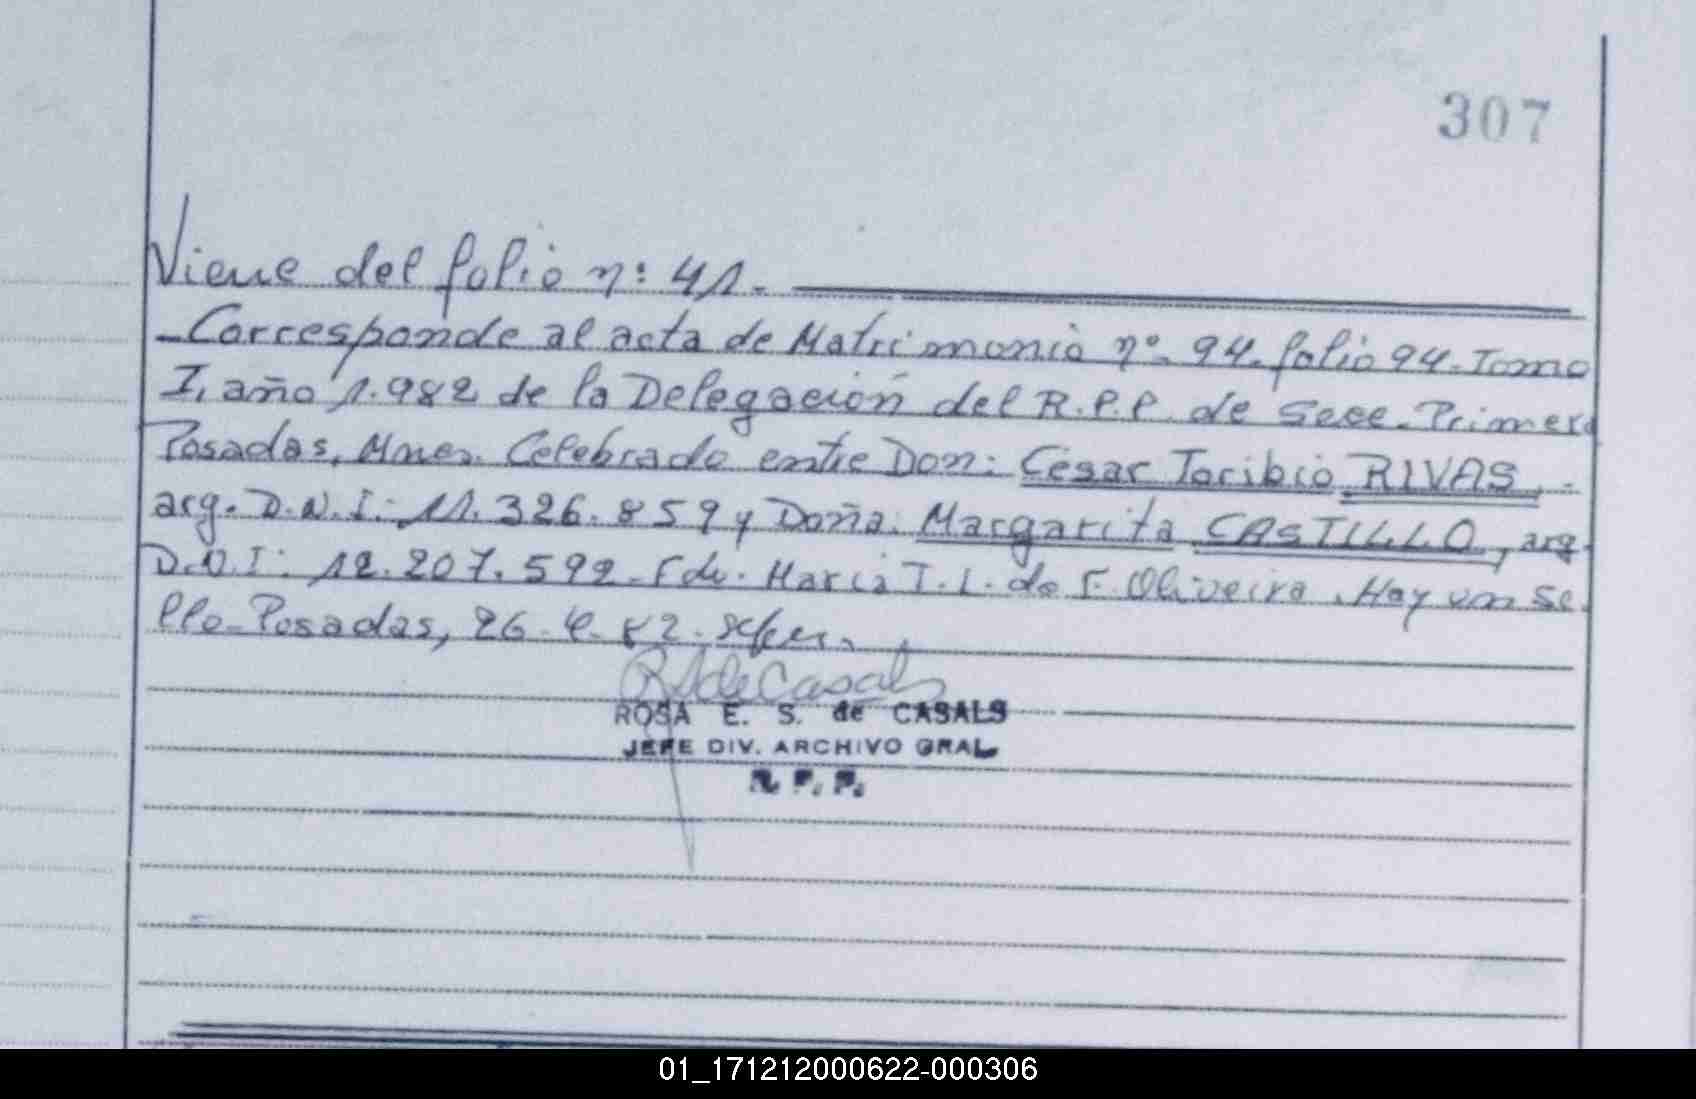 307
Viene del folio nº: 41.
-Corresponde al acta de Matrimonio nº. 94. folio 94. Tomo
I, año 1.982 de la Delegación del R.P.P. de Secc. Primera
Posadas, Mnes. Celebrado entre Don: César Toribio RIVAS,-
arg. D.N.I: 11.326.859 y Doña: Margarita CASTILLO, arg.
D.N.I: 12.207.592. Fdo. María T. L. de F. Oliveira. Hay un Se
llo. Posadas, 26.4.82.
R S de Casals
ROSA E. S. de CASALS
JEFE DIV. ARCHIVO GRAL
R. P. P.
01_171212000622-000306